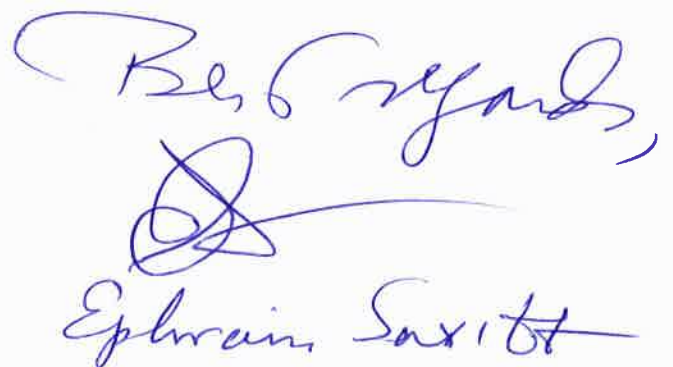 Best regards,
Ephraim Saxitt